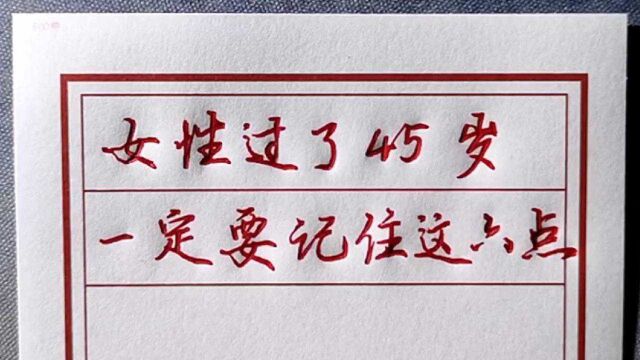 女性过了45岁
一定要记住这六点